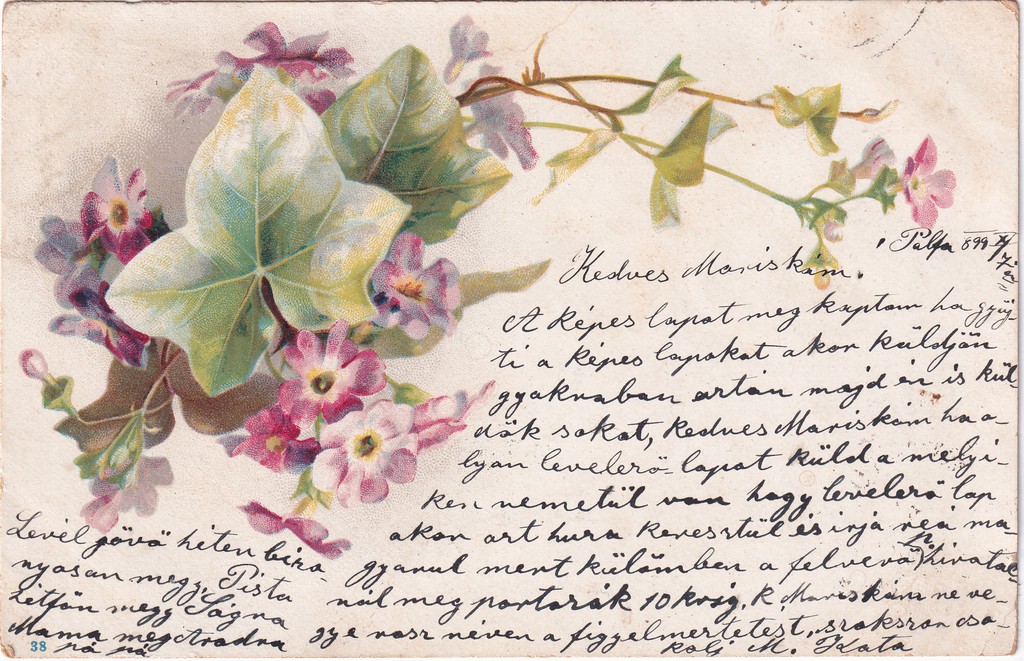 Pálfa 899 IV/7 én
Kedves Mariskám.
A képes lapot meg kaptam ha gyüj-
ti a képes lapokat akor küldjön
gyakraban aztán majd én is kül
dök sokat, kedves Mariskám ha o-
lyan levelező lapot küld a melyi-
ken nemetül van hogy levelező lap
akor azt huza keresztül és irja reá ma-
gyarul mert külömben a felverö p. hivatal-
nál meg portozák 10 krig. K Mariskám ne ve-
gye rosz néven a figyelmertetést, szokszor cso-
kolj M. Kata
Levél jövö héten bizo-
nyosan megy, Pista
Hétfön megy Ságra
Mama meg Aradra
pá pá
38